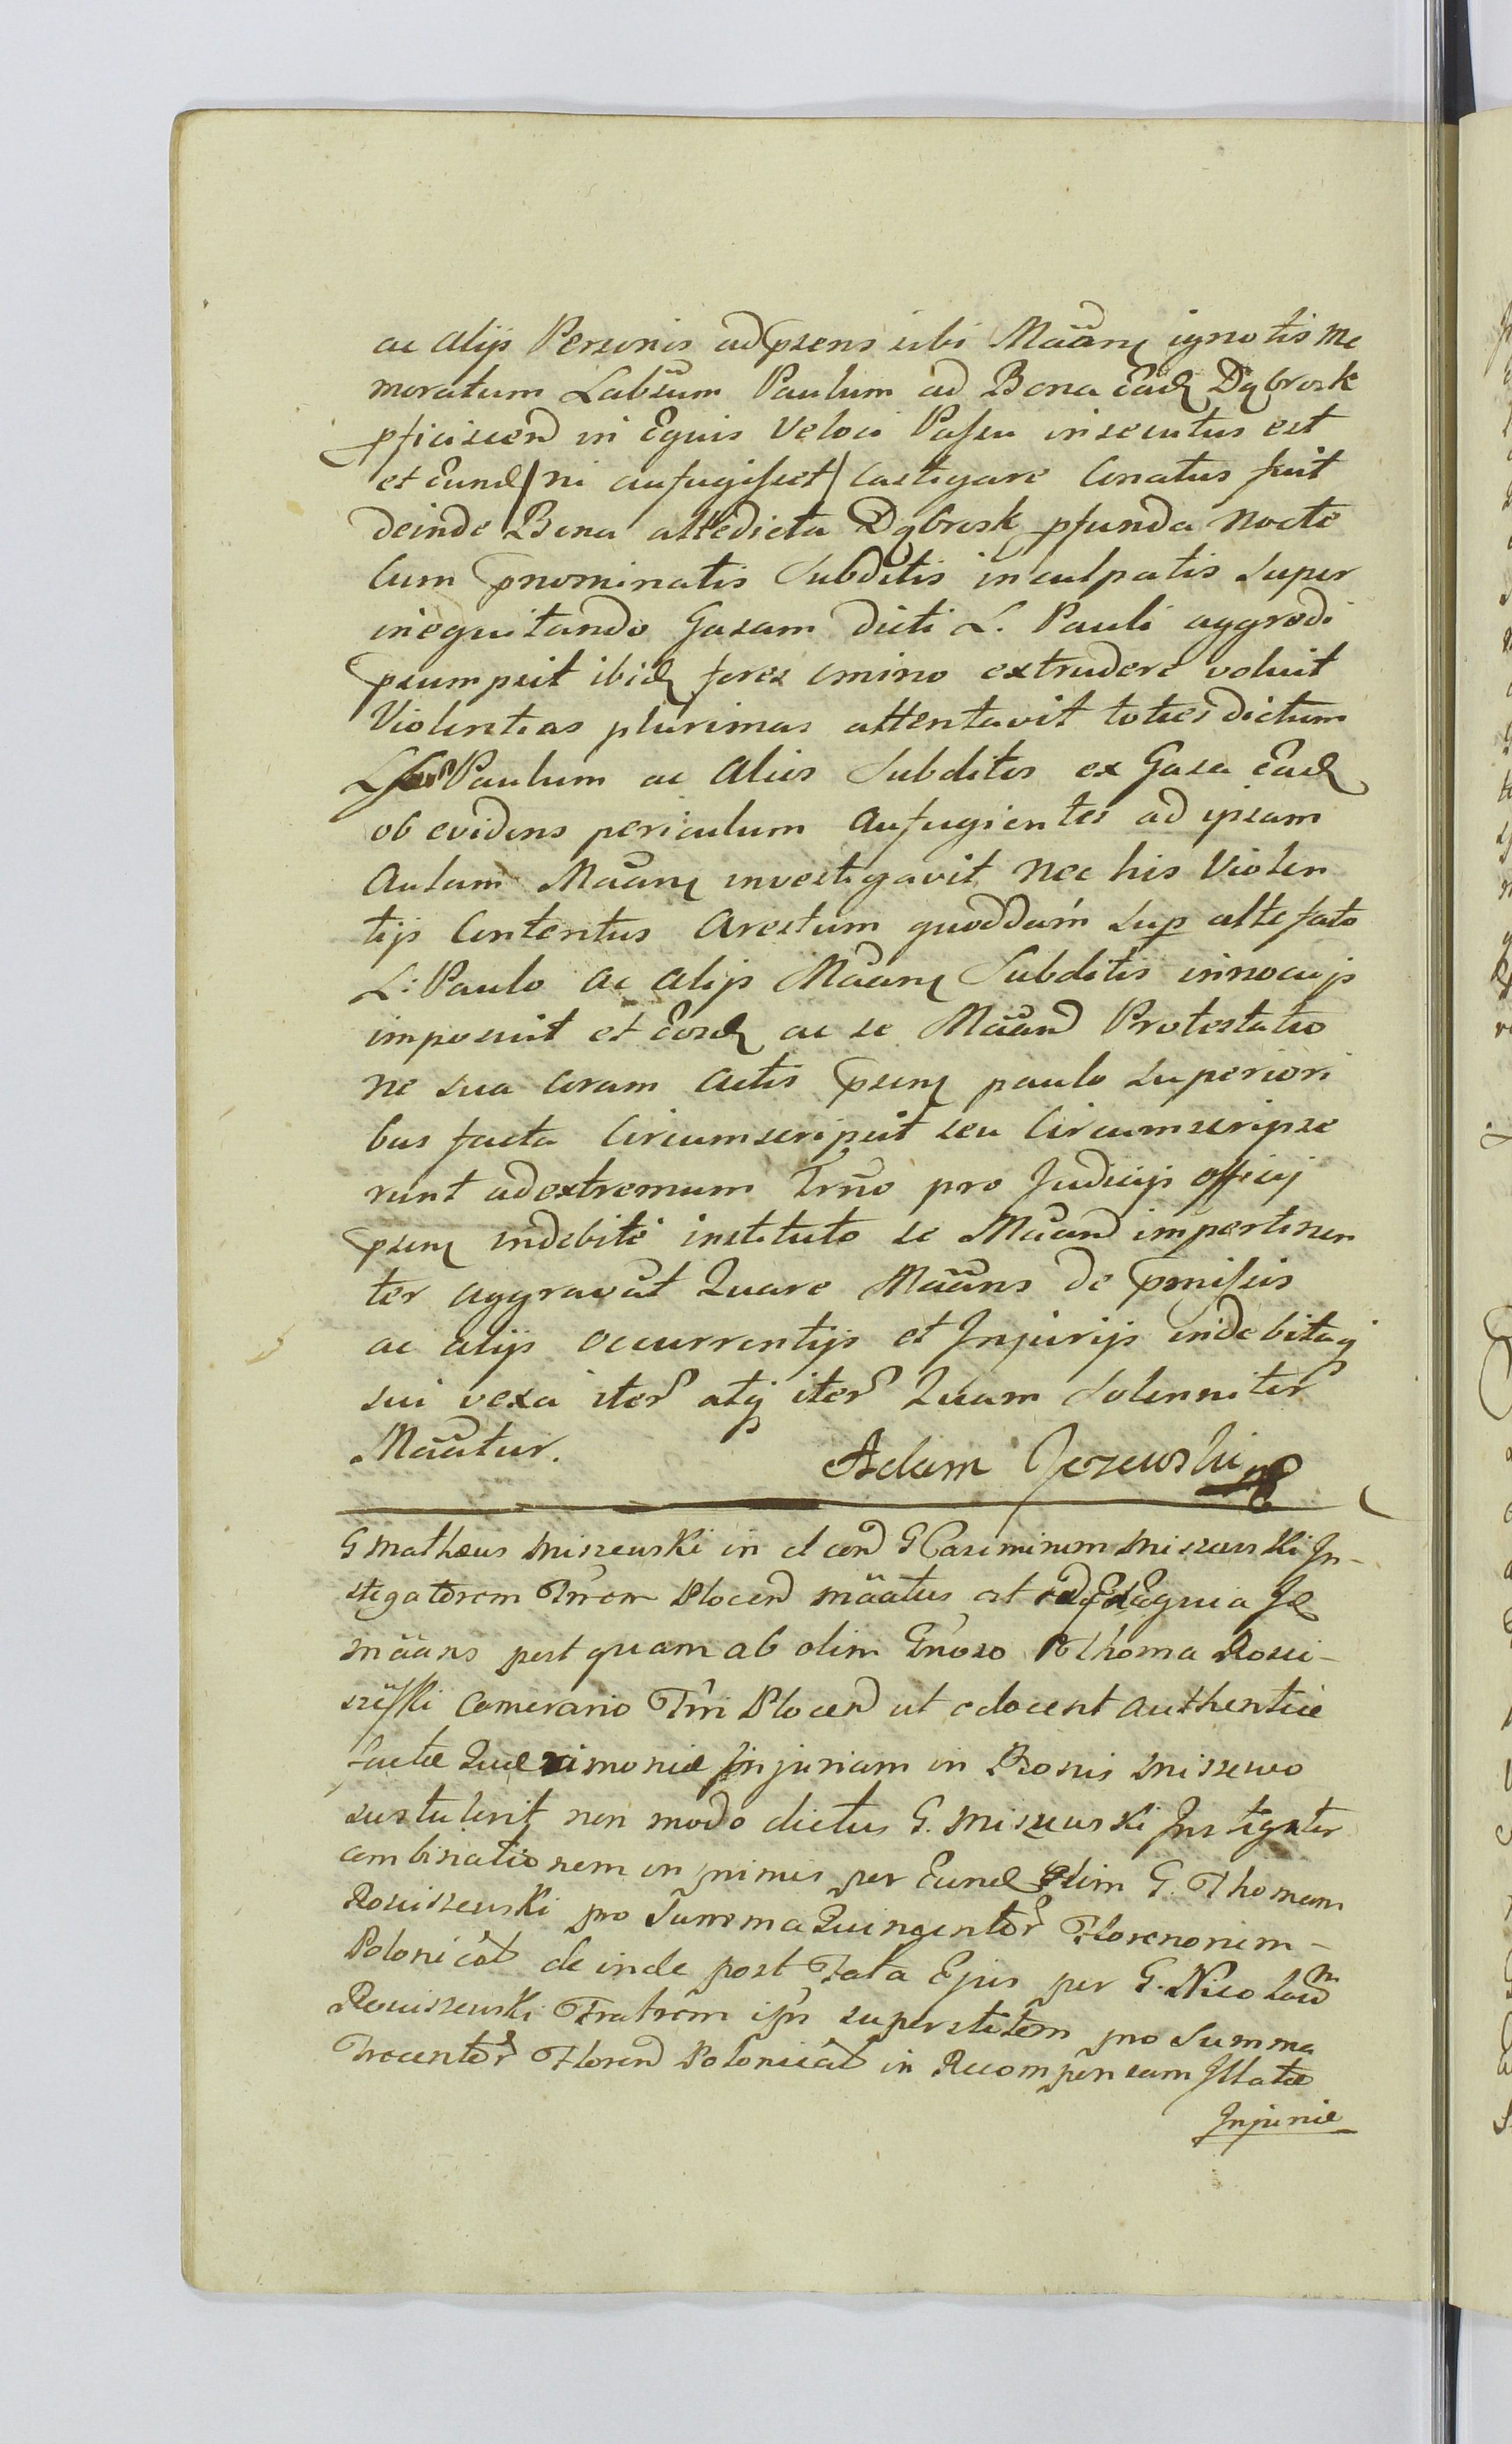 ac alijs Personis ad psens sibi Maan ignotis Me
moratum Labsum Paulum ad Bona Ead Dąbrosk
pficiscen in Equis Veloci Passu insecutus est
et Eund / ni aufugisset / castigare Conatus fuit
deinde Bona attedicta Dąbrosk pfunda nocte
Cum pnominatis Subditis inculpatis super
inequitando Gazam dicti L. Pauli aggredi
psumpsit ibid fores omino extrudere voluit
Violentias plurimas attentavit toties dictum
Paulum ac Alios Subditos ex Gaza Ead
ob evidens periculum Aufugientes ad ipsam
Aulam Maan investigavit Nec his Violen
tijs Contentus Arestum quoddam sup attefato
L: Paulo Ac alijs Maan Subditis innocuijs
imposuit et Eosd ac se Maan Protestatio
ne sua Coram Actis psen paulo superiori
bus facta Circumscripsit seu Circumscripse
runt ad extremum Trno pro Judicijs officij
psen indebite instituto se Maan impertinen
ter aggravat Quare Maans de pmissis
ac alijs occurrentijs et Injurijs indebitaq
sui vexa iter atq iter Quam Solenniter
Maatur. Adam Jezewski
G Matheus Miszewski in et con G Casimirum Miszewski In-
stigatorem Trrem Plocen maatus est quia Id
maans post quam ab olim Gnoso Thoma Rosci-
szewski Camerario Trri Plocen ut edocent Authentice
factæ Querimoniæ Injuriam in Bonis Miszewo
sustulerit non modo dictus G. Miszewski Instigator
combinationem in primis per Eund olim G. Thomam
Rosciszewski pro Summa Quingentor Florenorum-
Polonical deinde post Fata Ejus per G. Nicolaum
Rosciszewski Fratrem ipı superstitem pro Summa
Trecentor Floren Polonical in Recompensam Illatæ
Injuriæ